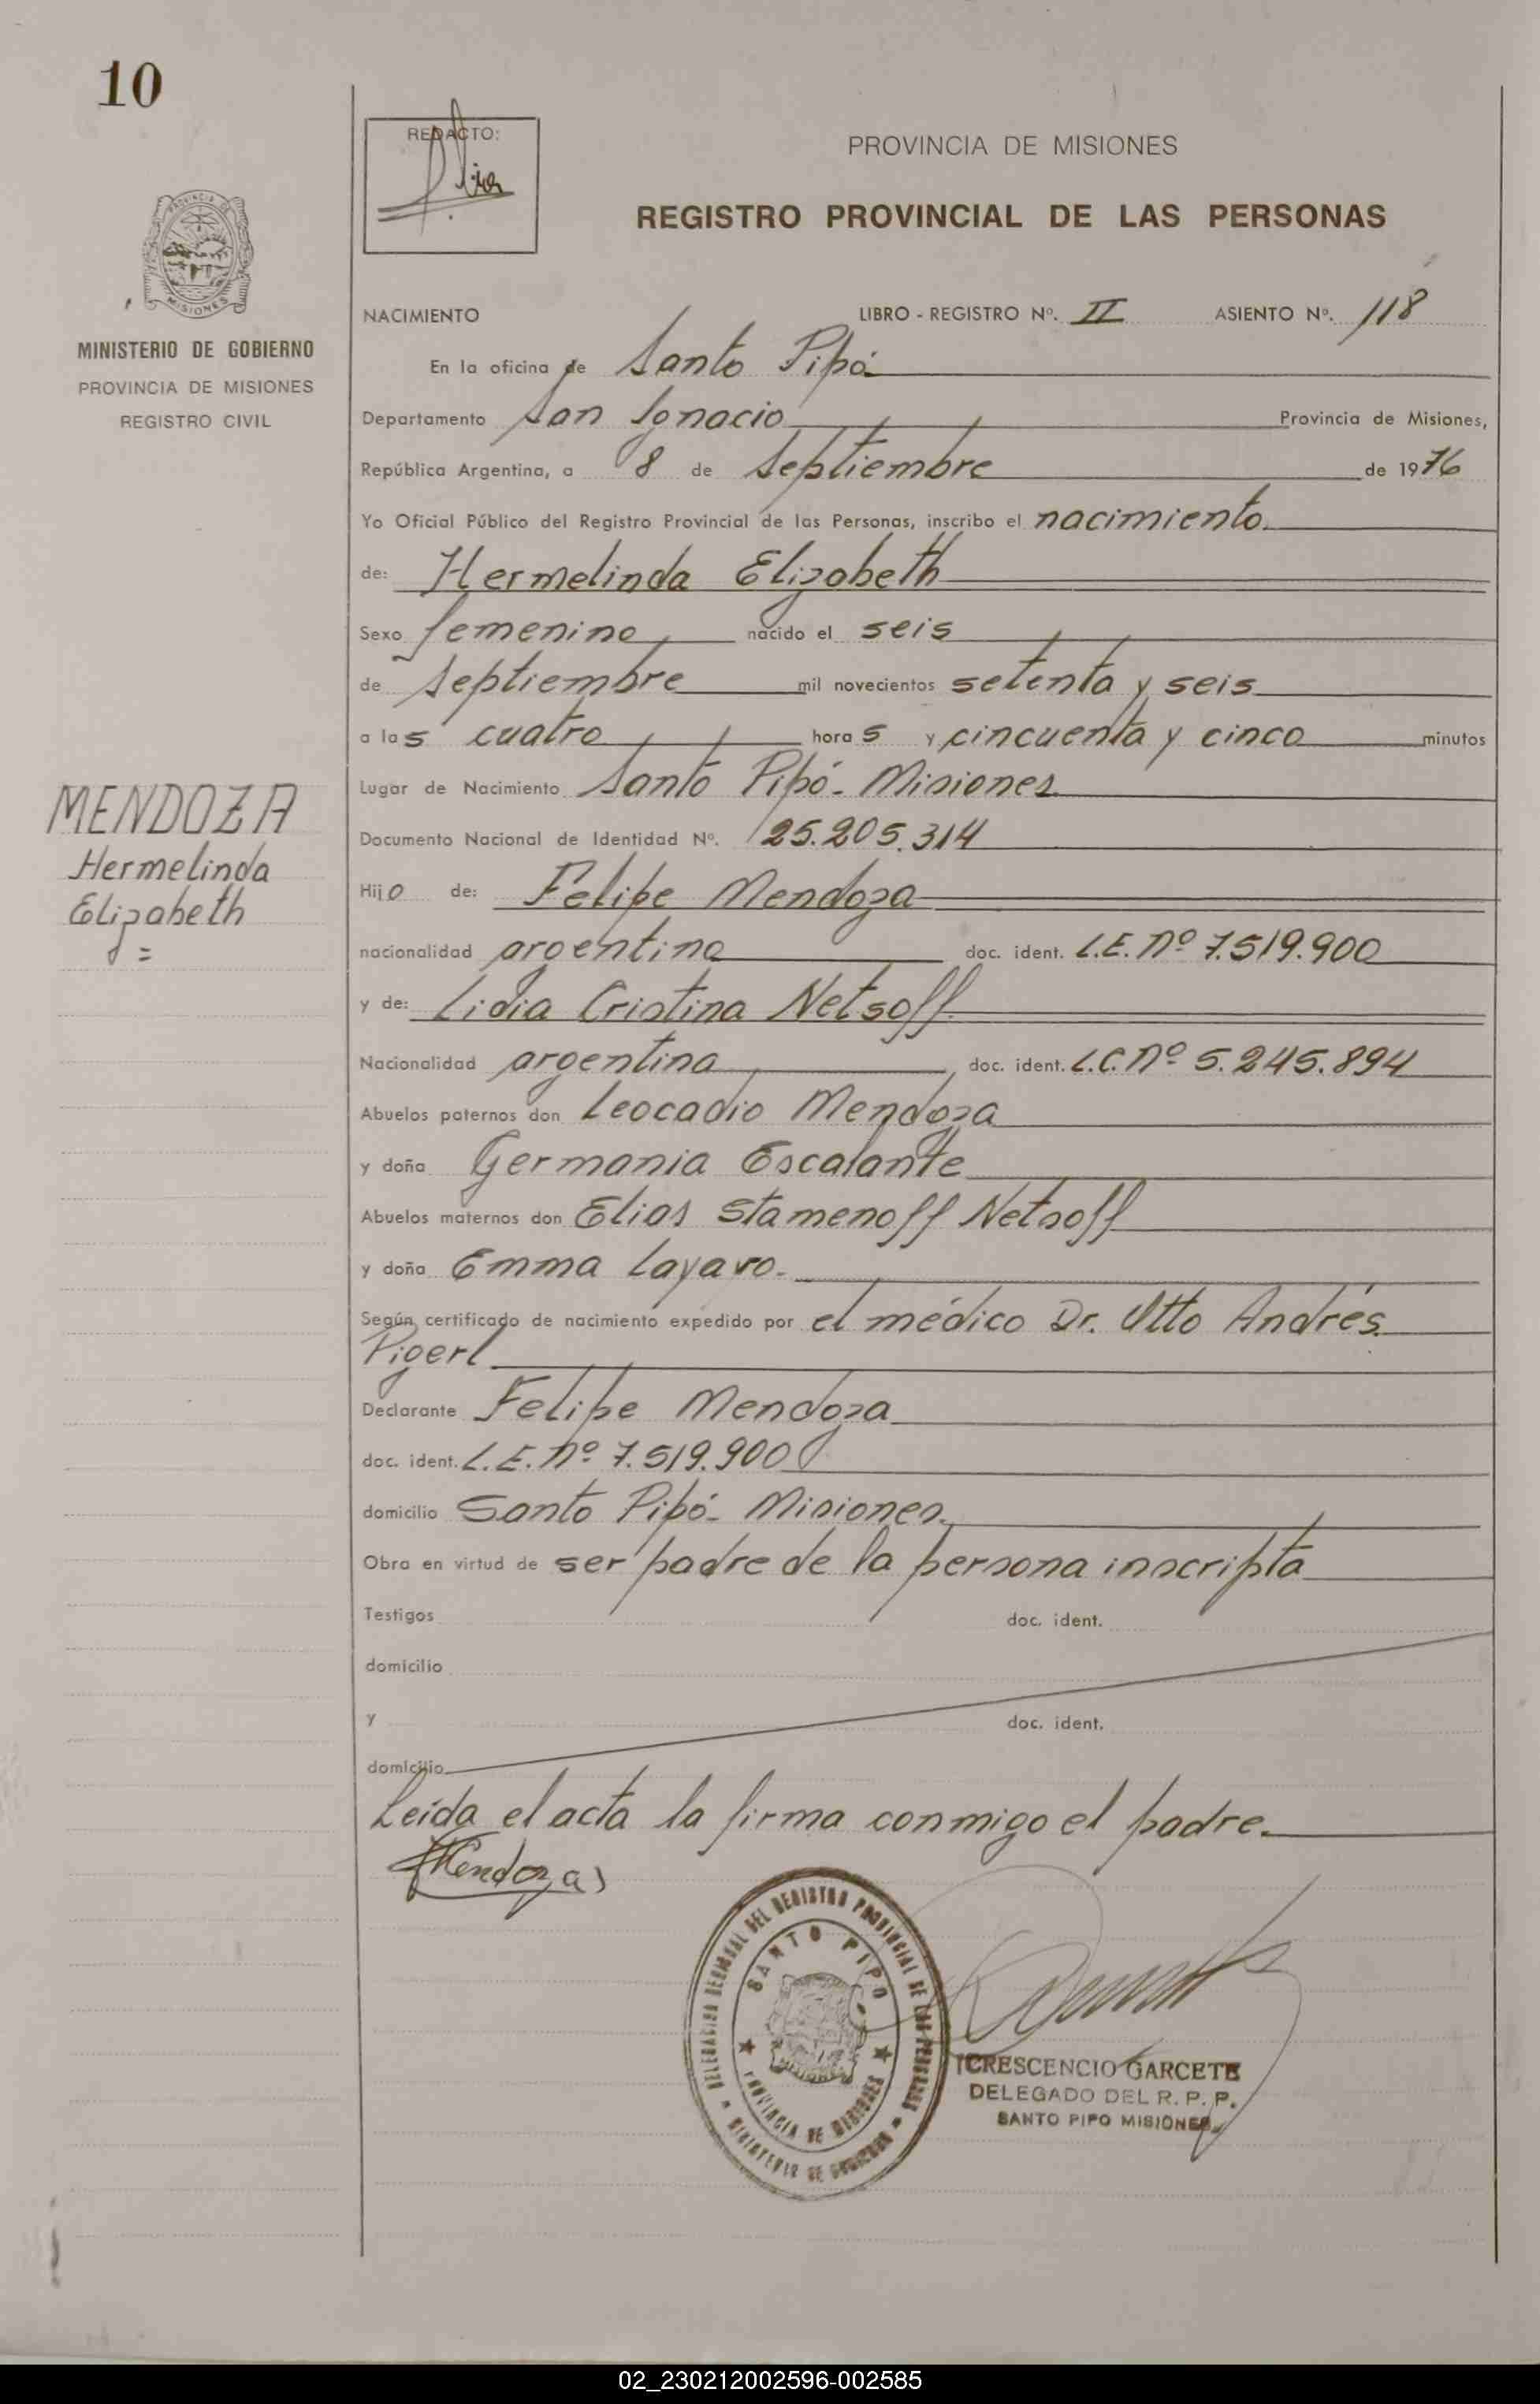 10
REDACTO:
PROVINCIA DE MISIONES
REGISTRO PROVINCIAL DE LAS PERSONAS
MINISTERIO DE GOBIERNO
PROVINCIA DE MISIONES
REGISTRO CIVIL
NACIMIENTO LIBRO - REGISTRO Nº. II ASIENTO Nº. 118
En la oficina de Santo Pipó
Departamento San Ignacio Provincia de Misiones,
República Argentina, a 8 de Septiembre de 1976
Yo Oficial Público del Registro Provincial de las Personas, inscribo el nacimiento
de: Hermelinda Elizabeth
Sexo femenino nacido el seis
de Septiembre mil novecientos setenta y seis
a las cuatro horas y cincuenta y cinco minutos
Lugar de Nacimiento Santo Pipó - Misiones
MENDOZA
Hermelinda
Elizabeth
=
Documento Nacional de Identidad Nº. 25.205.314
Hijo de: Felipe Mendoza
nacionalidad argentina doc. ident. L.E. Nº 7.519.900
y de: Lidia Cristina Netsoff
Nacionalidad argentina doc. ident. L.C. Nº 5.245.894
Abuelos paternos don Leocadio Mendoza
y doña Germania Escalante
Abuelos maternos don Elias Stamenoff Netsoff
y doña Emma Layavo.
Según certificado de nacimiento expedido por el médico Dr. Otto Andrés
Pigerl
Declarante Felipe Mendoza
doc. ident. L.E. Nº 7.519.900
domicilio Santo Pipó - Misiones.
Obra en virtud de ser padre de la persona inscripta
Testigos doc. ident.
domicilio
y doc. ident.
domicilio
Leída el acta la firma conmigo el padre.
Mendoza
DELEGACION REGIONAL DEL REGISTRO PROVINCIAL DE LAS PERSONAS
MINISTERIO DE GOBIERNO
SANTO PIPO
PROVINCIA DE MISIONES
MISIONES
CRESCENCIO GARCETE
DELEGADO DEL R. P. P.
SANTO PIPO MISIONES
02_230212002596-002585